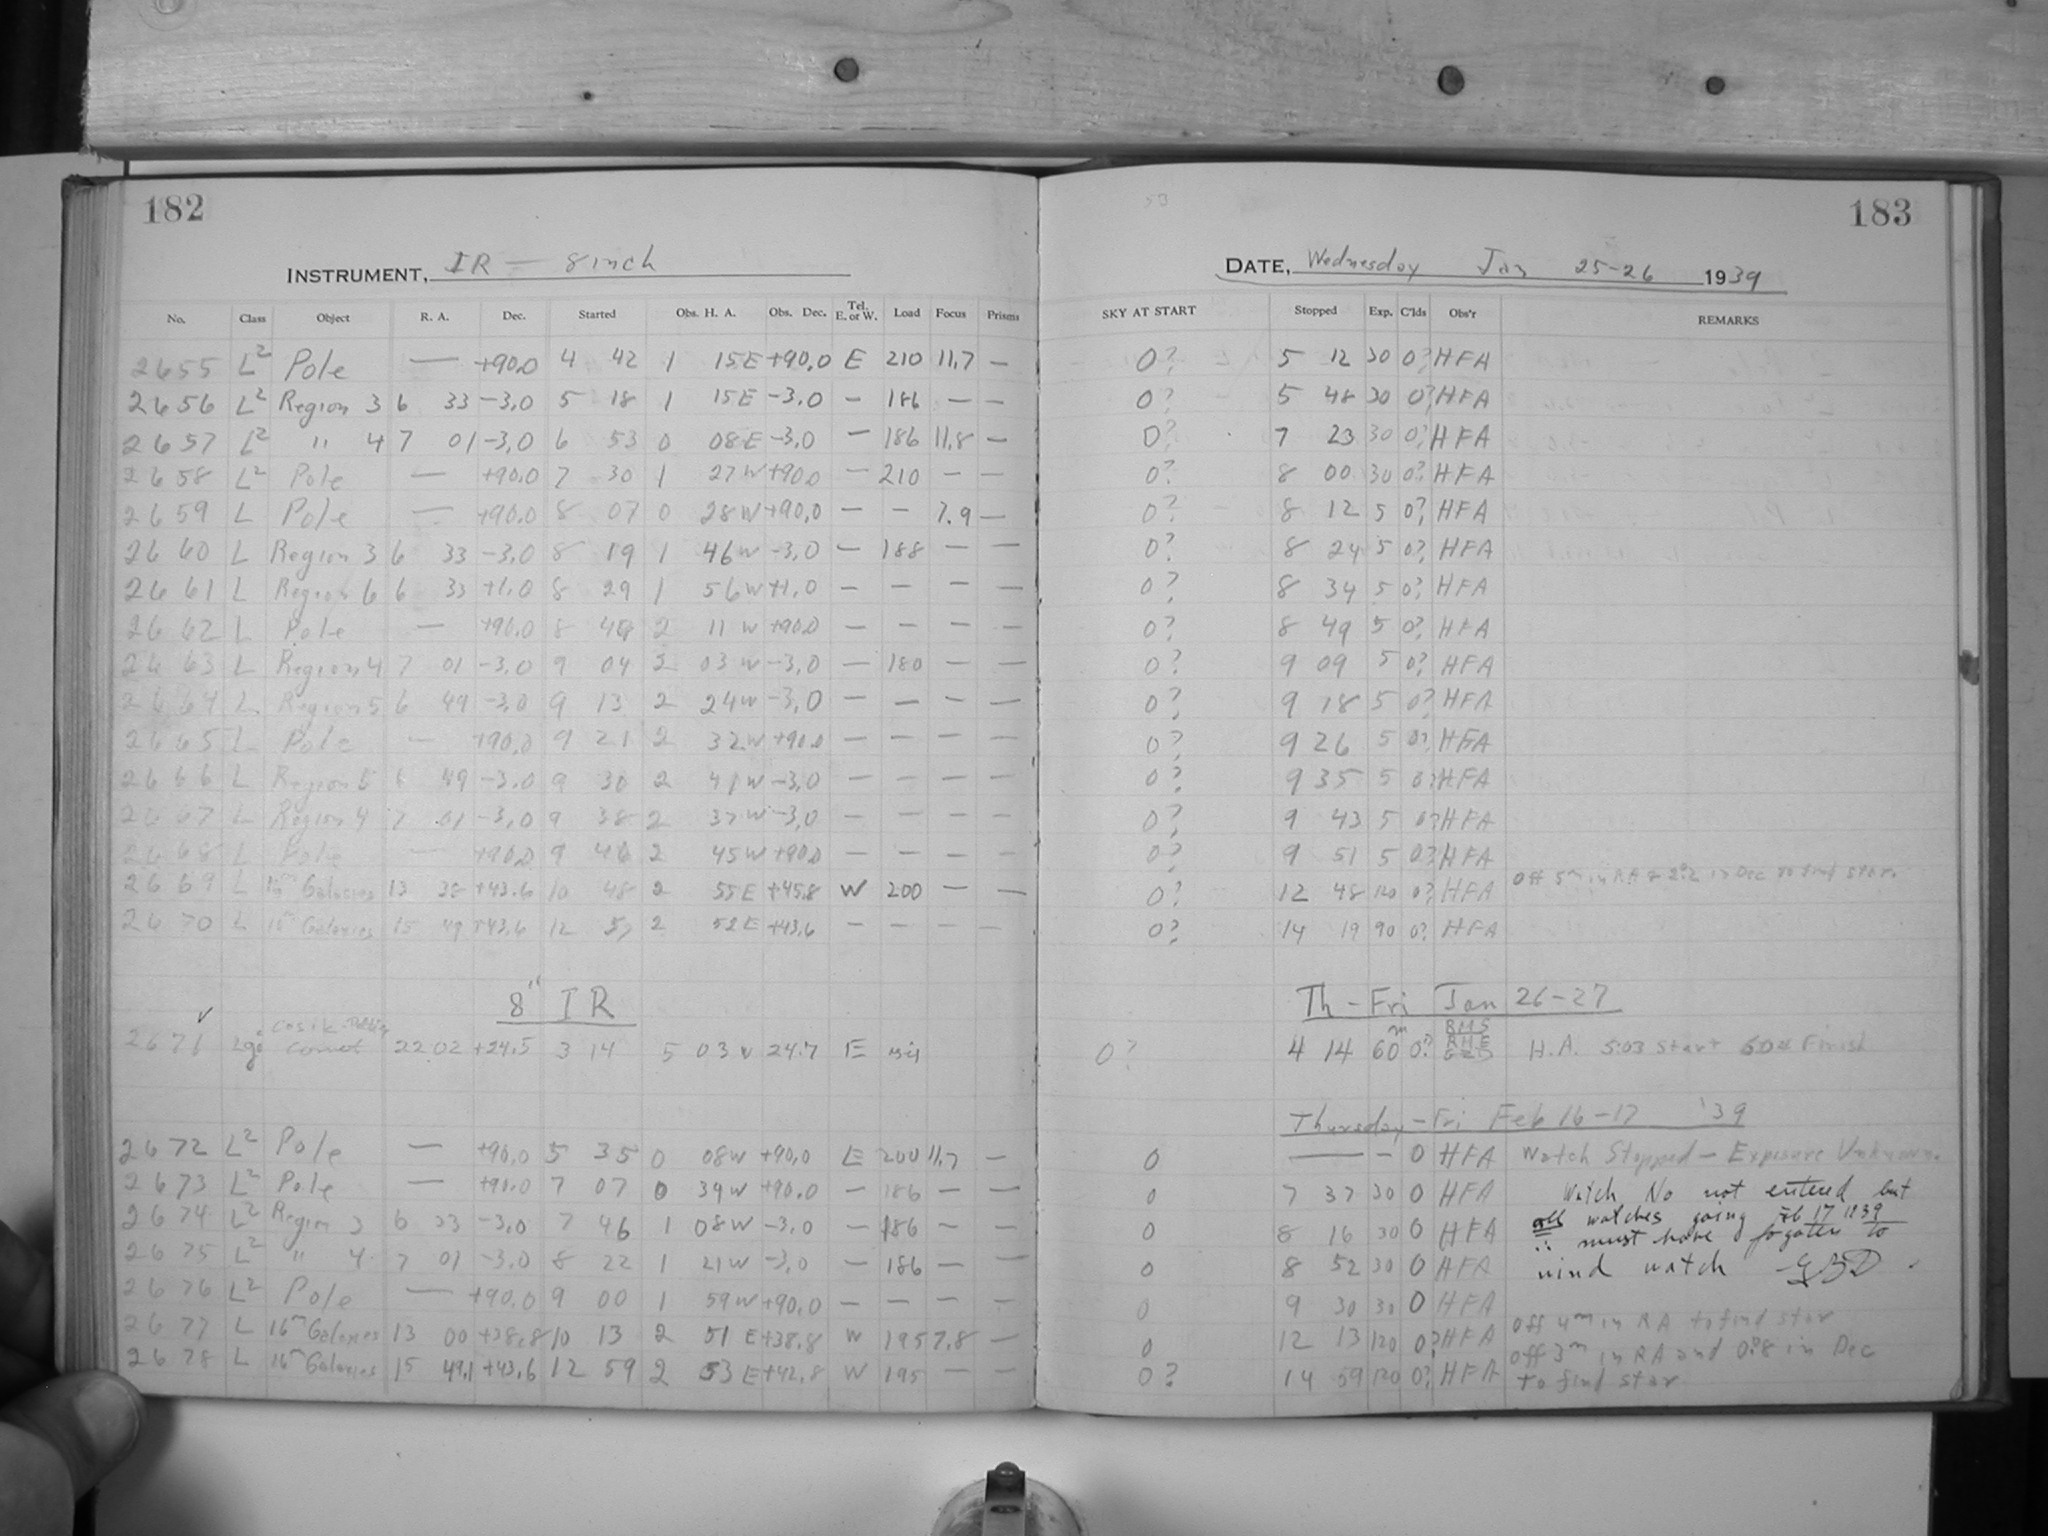 182
INSTRUMENT, IR — 8 inch
No. Class Object R. A. Dec. Started Obs. H. A. Obs. Dec. Tel. E. or W. Load Focus Prisms
2655 L² Pole — +90.0 4 42 1 15E +90.0 E 210 11.7 —
2656 L² Region 3 6 33 -3.0 5 18 1 15E -3.0 — 186 — —
2657 L² " 4 7 01 -3.0 6 53 0 08E -3.0 — 186 11.8 —
2658 L² Pole — +90.0 7 30 1 27W +90.0 — 210 — —
2659 L Pole — +90.0 8 07 0 28W +90.0 — — 7.9 —
2660 L Region 3 6 33 -3.0 8 19 1 46W -3.0 — 188 — —
2661 L Region 6 6 33 +1.0 8 29 1 56W +1.0 — — — —
2662 L Pole — +90.0 8 2 11W +90.0 — — — —
2663 L Region 4 7 01 -3.0 9 04 2 03W -3.0 — 180 — —
2664 L Region 5 6 49 -3.0 9 13 2 24W -3.0 — — — —
2665 L Pole — +90.0 9 21 2 32W +90.0 — — — —
2666 L Region 5 6 49 -3.0 9 30 2 41W -3.0 — — — —
2667 L Region 4 7 01 -3.0 9 38 2 37W -3.0 — — — —
2668 L Pole — +90.0 9 46 2 45W +90.0 — — — —
2669 L Galaxies 13 38 +43.6 10 48 2 55E +45.8 W 200 — —
2670 L 16m Galaxies 15 49 +43.6 12 2 52E +43.6 — — — —
8" IR
2671 Comet 22 02 +24.5 3 14 5 03W 24.7 E
2672 L² Pole — +90.0 5 35 0 08W +90.0 E 200 11.7 —
2673 L² Pole — +90.0 7 07 0 34W +90.0 — 186 — —
2674 L² Region 3 6 33 -3.0 7 46 1 08W -3.0 — 186 — —
2675 L² " 4 7 01 -3.0 8 22 1 21W -3.0 — 186 — —
2676 L² Pole — +90.0 9 00 1 59W +90.0 — — — —
2677 L 16m Galaxies 13 00 +38.8 10 13 2 51E +38.8 W 195 7.8 —
2678 L 16m Galaxies 15 49.1 +43.6 12 59 2 53E +42.8 W 195 — —
183
DATE, Wednesday Jan 25-26 1939
SKY AT START Stopped Exp. C'lds Obs'r REMARKS
0? 5 12 30 0? HFA
0? 5 48 30 0? HFA
0? 7 23 30 0? HFA
0? 8 00 30 0? HFA
0? 8 12 5 0? HFA
0? 8 24 5 0? HFA
0? 8 34 5 0? HFA
0? 8 49 5 0? HFA
0? 9 09 5 0? HFA
0? 9 18 5 0? HFA
0? 9 26 5 0? HFA
0? 9 35 5 0? HFA
0? 9 43 5 0? HFA
0? 9 51 5 0? HFA
0? 12 48 120 0? HFA Off 5m in RA & 2°.2 in Dec to find star.
0? 14 19 90 0? HFA
Th - Fri Jan 26-27
0? 4 14 60m 0? H.A. 5:03 Start Finish
Thursday - Fri Feb 16-17 '39
0 — — 0 HFA Watch Stopped — Exposure Unknown.
0 7 37 30 0 HFA Watch No not entered but
0 8 16 30 0 HFA all watches going Feb 17 1939
∴ must have forgotten to
0 8 52 30 0 HFA wind watch
0 9 30 30 0 HFA
0 12 13 120 0? HFA Off 4m in RA to find star
0? 14 59 120 0? HFA Off 3m in RA and 0°.8 in Dec
to find star